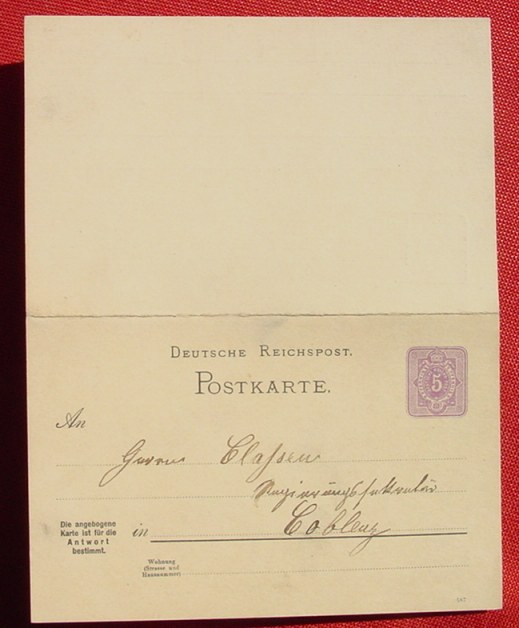 DEUTSCHE REICHSPOST.
POSTKARTE.
5
An
Herrn Classen
Regierungssekretär
Die angebogene
Karte ist für die
Antwort
bestimmt.
in Coblenz
Wohnung
(Strasse und
Hausnummer)